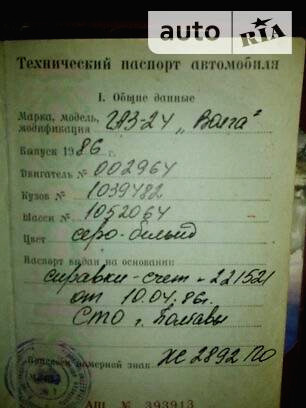 auto RIA
Технический паспорт автомобиля
I. Общие данные
Марка, модель, модификация ГАЗ-24 „Волга"
Выпуск 1986 г.
Двигатель № 002964
Кузов № 1039482
Шасси № 1052064
Цвет серо-белый
Паспорт выдан на основании:
справки-счет - 221521
от 10.04.86г.
СТО г. Полтавы
номерной знак ХС 2892 ПО
№ 393913